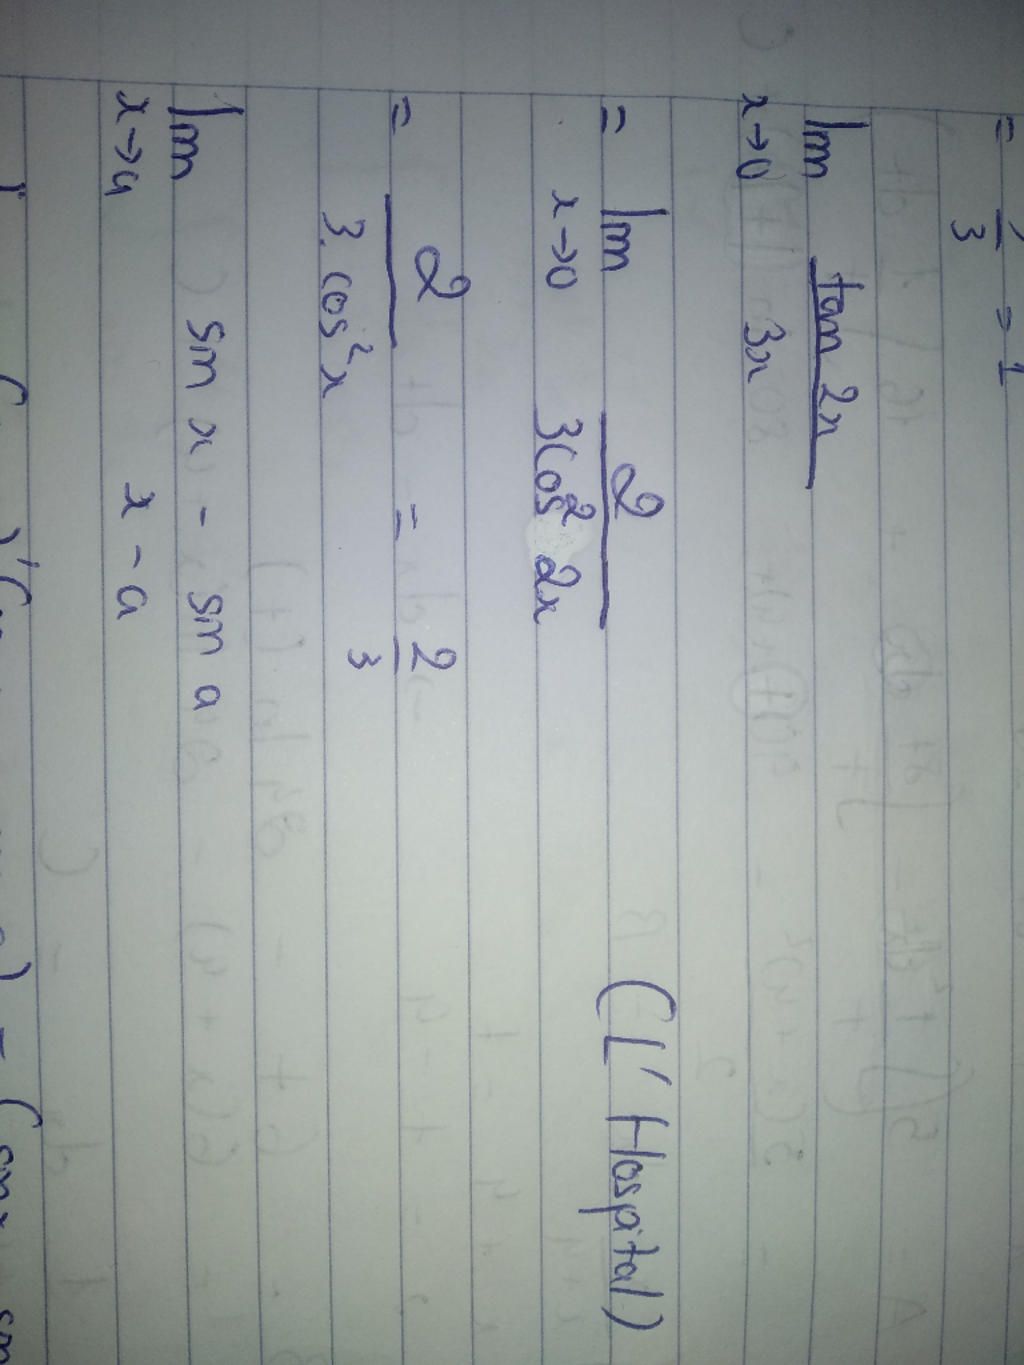 = /3 = 1
lim x→0 tan 2x / 3x
= lim x→0 2 / 3cos² 2x (L' Hospital)
= 2 / 3.cos²x = 2/3
lim x→a sin x - sin a / x - a